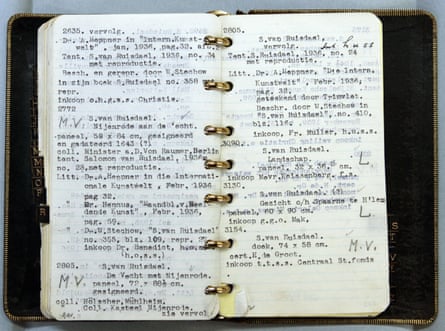 2635. vervolg.
Dr. A. Heppner in "Intern. Kunst-
welt". jan. 1936, pag. 32, afb.
Tent. S. van Ruisdael, 1936, no. 34
met reproductie.
Besch. en gerepr. door W. Stechow
in zijn boek S. Ruisdael no. 358
repr.
inkoop o.h.g.w.s. Christie.
2772
M.V. S. van Ruisdael.
Nijenrode aan de Vecht.
paneel, 59 x 84 cm, gesigneerd
en gedateerd 1643 (?)
coll. Minister s.D. Von Raumer, Berlin
tent. Salomon van Ruisdael, 1936
no. 28, met reproductie.
Litt. Dr. A. Heppner in die Internati-
onale Kunstwelt, Febr. 1936
pag. 32.
Dr. Hennus, "Maandbl. v. Beel-
dende Kunst", Febr. 1936,
pag. 59.
Dr. W. Stechow, "S. van Ruisdael"
no. 355, blz. 109, repr.
inkoop Dr. Benedict
(h.o.s.s.)
2805. S. van Ruisdael.
M.V. De Vecht met Nijenrode.
paneel, 72 x 88½ cm
gesigneerd.
coll. Hölscher, Mühlheim.
Coll. Kasteel Nijenrode.
zie vervolg
2805. S. van Ruisdael.
vervolg.
Tent. S. Ruisdael, 1936, no. 24
met reproductie.
Litt. Dr. A. Heppner, "Die Intern.
Kunstwelt", Febr. 1936,
pag. 32.
getekend door
Beschr. door W. Stechow in
"S. van Ruisdael", no. 410,
blz. 116.
inkoop Fr. Muller, h.u.s.s.
3090. S. van Ruisdael.
Landschap.
paneel, 32 x 36, cm. L
inkoop Mevr. Reissenberg.
3130.
S. van Ruisdael.
Gezicht o/h Spaarne te H'lem
paneel, 60 x 90 cm. L
inkoop g.g.o. Mak.
3154.
S. van Ruisdael.
doek, 74 x 58 cm. M.V.
cert. H. de Groot.
inkoop t.t.s.s. Centraal St. fonds
M N O P R
S
V